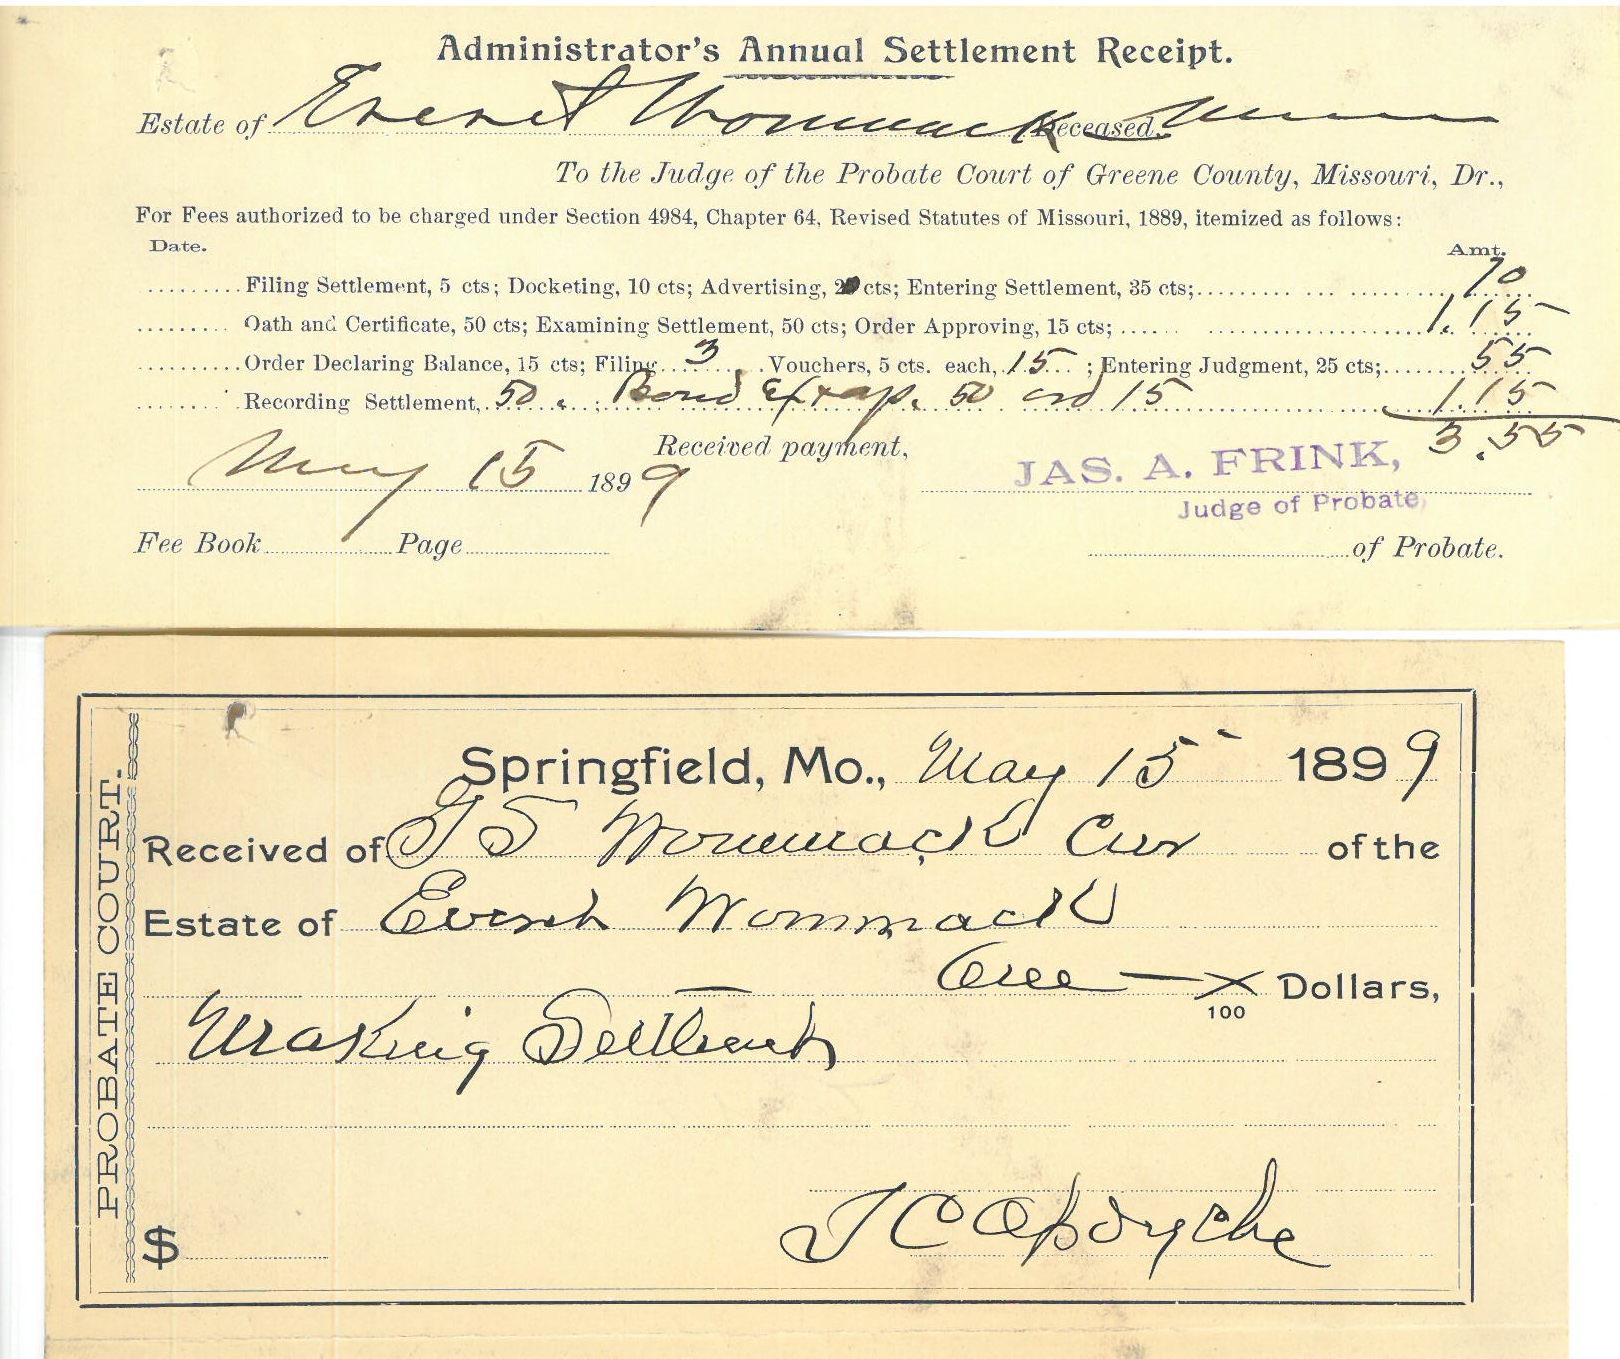 Administrator's Annual Settlement Receipt.
Estate of Everet Wommack Deceased.
To the Judge of the Probate Court of Greene County, Missouri, Dr.,
For Fees authorized to be charged under Section 4984, Chapter 64, Revised Statutes of Missouri, 1889, itemized as follows:
Date. Amt.
Filing Settlement, 5 cts; Docketing, 10 cts; Advertising, 20 cts; Entering Settlement, 35 cts; 70
Oath and Certificate, 50 cts; Examining Settlement, 50 cts; Order Approving, 15 cts; 1.15
Order Declaring Balance, 15 cts; Filing 3 Vouchers, 5 cts. each, 15 ; Entering Judgment, 25 cts; 55
Recording Settlement, 50. ; Bond & 50 ord 15 1.15
3.55
Received payment,
May 15 1899
JAS. A. FRINK,
Judge of Probate,
Fee Book Page of Probate.
PROBATE COURT.
Springfield, Mo., May 15 1899
Received of G S Wommack Cur of the
Estate of Everet Wommack
One — X/100 Dollars,
Making Settlement
$